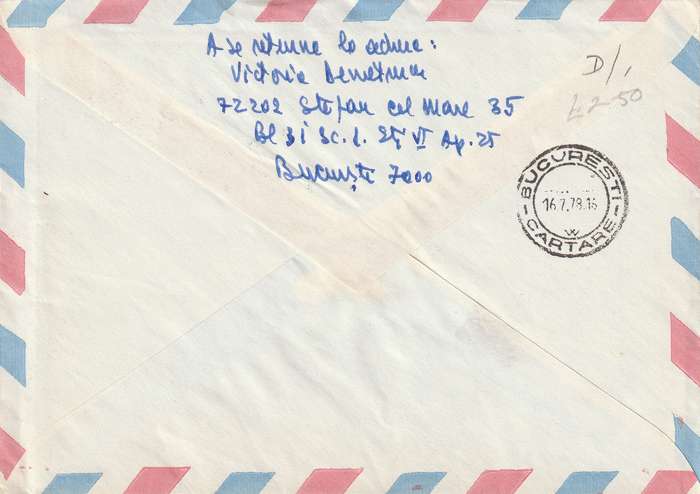 A se returna la adresa:
Victoria Demetrian
72202 Stefan cel Mare 35
Bl 31 Sc. 1. Etj VI Ap. 25
București 7000
D/,
£2-50
BUCURESTI
16.7.79.16
CARTARE